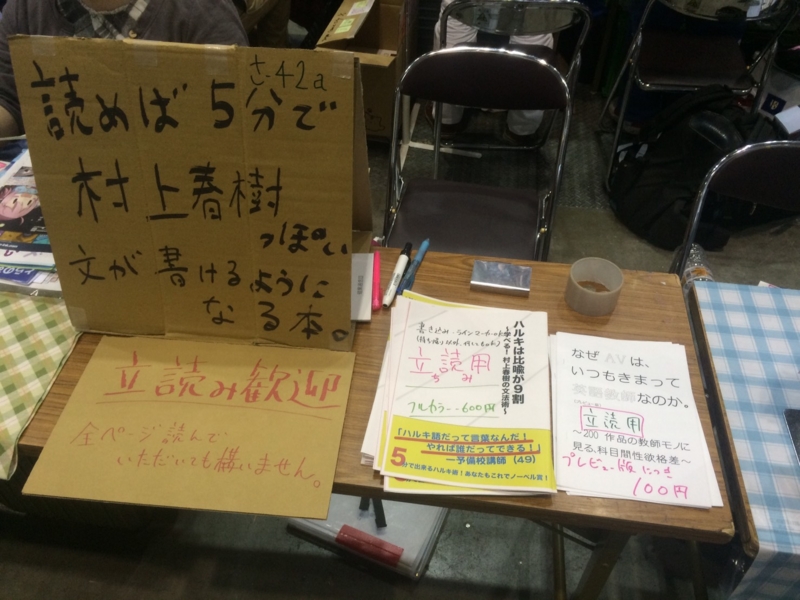 さ-42a
読めば5分で
村上春樹
っぽい
文が書けるように
なる本。
立読み歓迎
全ページ読んで
いただいても構いません。
ハルキは比喩が9割
〜学べる!村上春樹の文法術〜
書き込み・ラインマーカーOK
立読用
フルカラー・・600円
「ハルキ語だって言葉なんだ!
やれば誰だってできる!」
―予備校講師(49)
5分で出来るハルキ術!あなたもこれでノーベル賞!
なぜAVは、
いつもきまって
英語教師なのか。
立読用
〜200作品の教師モノに
見る、科目間性欲格差〜
プレビュー版につき
100円